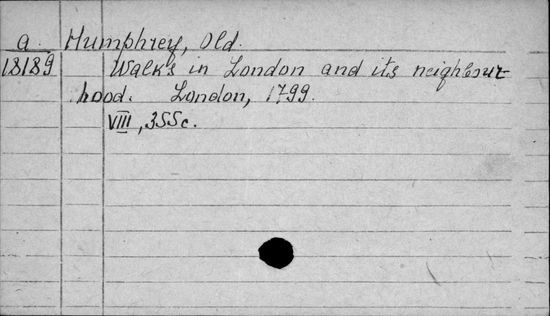 a. Humphrey, Old.
18189 Walks in London and its neighbour-
hood. London, 1799.
VIII, 355c.